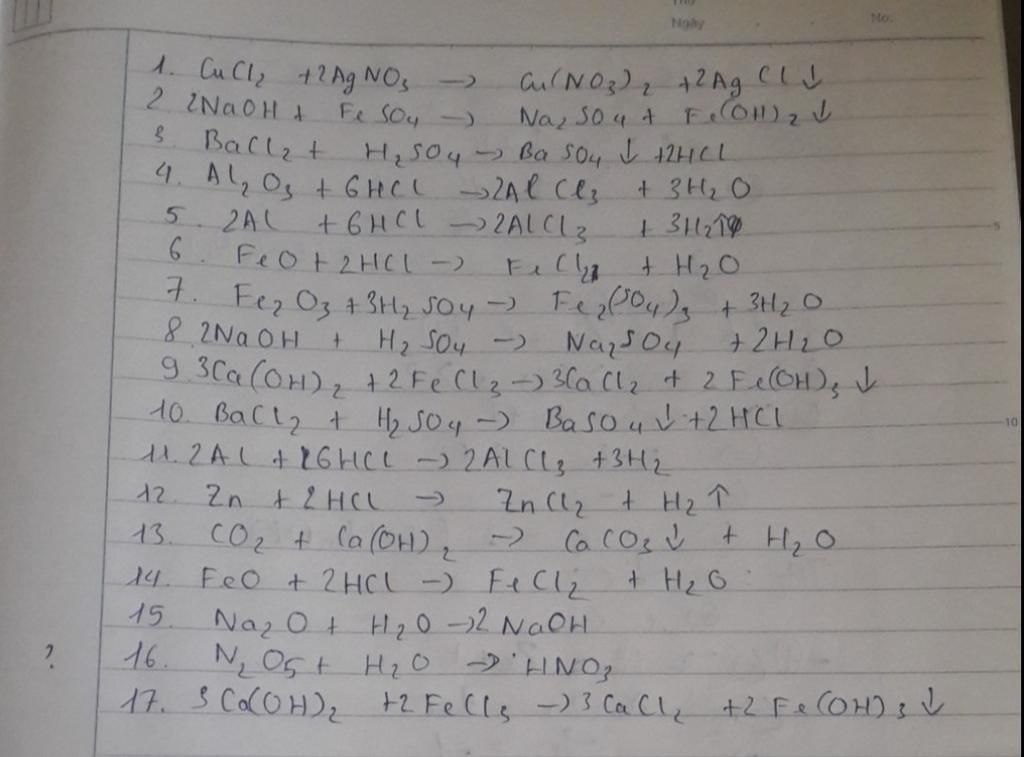 Thứ
Ngày No.
1. CuCl2 +2AgNO3 → Cu(NO3)2 +2AgCl↓
2 2NaOH + FeSO4 → Na2SO4 + Fe(OH)2↓
3. BaCl2 + H2SO4 → BaSO4↓ +2HCl
4. Al2O3 + 6HCl →2AlCl3 + 3H2O
5. 2Al +6HCl →2AlCl3 + 3H2↑
5
6. FeO + 2HCl → FeCl2 + H2O
7. Fe2O3 +3H2SO4 → Fe2(SO4)3 + 3H2O
8. 2NaOH + H2SO4 → Na2SO4 +2H2O
9. 3Ca(OH)2 +2FeCl3 →3CaCl2 + 2Fe(OH)3↓
10. BaCl2 + H2SO4 → BaSO4↓ +2HCl
10
11. 2Al + 6HCl → 2AlCl3 +3H2
12. Zn + 2HCl → ZnCl2 + H2↑
13. CO2 + Ca(OH)2 → CaCO3↓ + H2O
14. FeO + 2HCl → FeCl2 + H2O
15. Na2O + H2O →2NaOH
? 16. N2O5 + H2O → HNO3
17. 3Ca(OH)2 +2FeCl3 →3CaCl2 +2Fe(OH)3↓